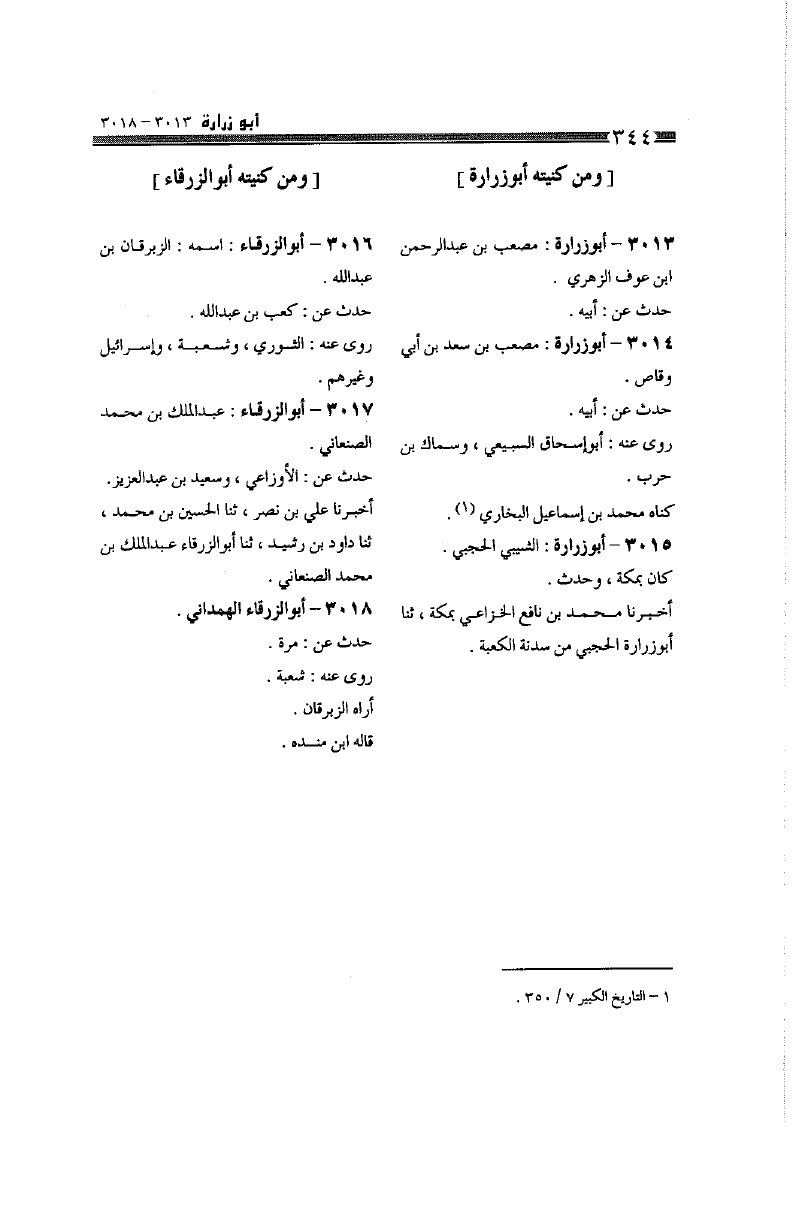 أبو زرارة ٣٠١٣ – ٣٠١٨
٣٤٤
[ ومن كنيته أبوزرارة ]
٣٠١٣ – أبوزرارة : مصعب بن عبدالرحمن
ابن عوف الزهري .
حدث عن : أبيه .
٣٠١٤ – أبوزرارة : مصعب بن سعد بن أبي
وقاص .
حدث عن : أبيه .
روى عنه : أبوإسحاق السبيعي ، وسماك بن
حرب .
كناه محمد بن إسماعيل البخاري (١) .
٣٠١٥ – أبوزرارة : الشيبي الحجبي .
كان بمكة ، وحدث .
أخبرنا محمد بن نافع الخزاعي بمكة ، ثنا
أبوزرارة الحجبي من سدنة الكعبة .
[ ومن كنيته أبوالزرقاء ]
٣٠١٦ – أبوالزرقاء : اسمه : الزبرقان بن
عبدالله .
حدث عن : كعب بن عبدالله .
روى عنه : الثوري ، وشعبة ، وإسرائيل
وغيرهم .
٣٠١٧ – أبوالزرقاء : عبدالملك بن محمد
الصنعاني .
حدث عن : الأوزاعي ، وسعيد بن عبدالعزيز .
أخبرنا علي بن نصر ، ثنا الحسين بن محمد ،
ثنا داود بن رشيد ، ثنا أبوالزرقاء عبدالملك بن
محمد الصنعاني .
٣٠١٨ – أبوالزرقاء الهمداني .
حدث عن : مرة .
روى عنه : شعبة .
أراه الزبرقان .
قاله ابن منده .
١ – التاريخ الكبير ٧ / ٣٥٠ .